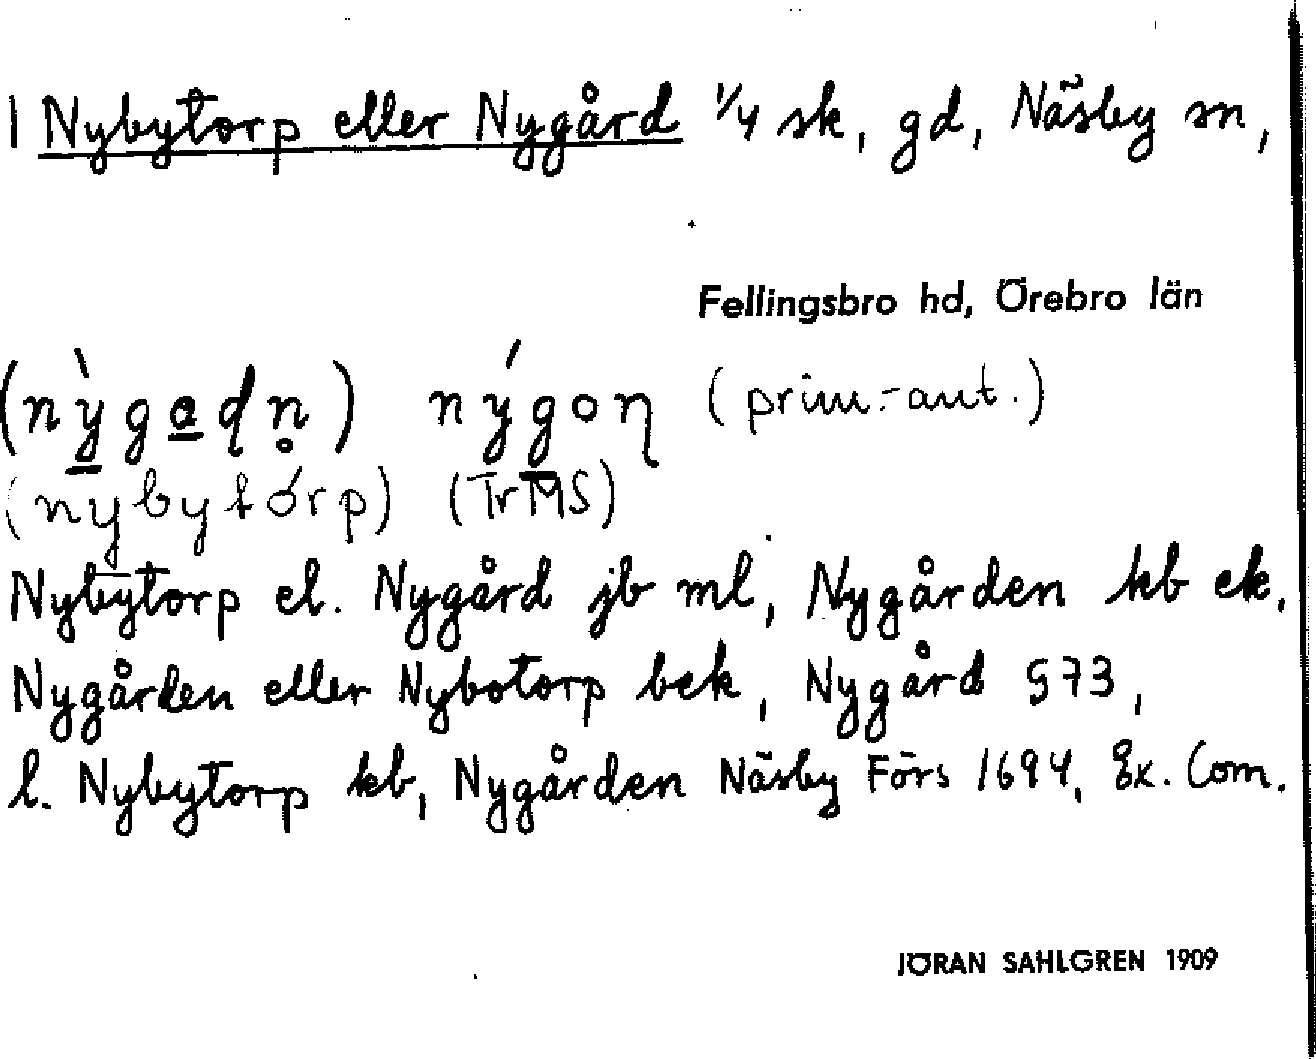 1 Nybytorp eller Nygård 1/4 sk, gd, Näsby sn,
Fellingsbro hd, Örebro län
(nỳgadn̥) nýgoɳ (prim.-ant.)
(nybytórp) (TrMS)
Nybytorp el. Nygård jb ml, Nygården kb ek.
Nygården eller Nybotorp bek, Nygård S73,
l. Nybytorp kb, Nygården Näsby Förs 1694, Ex. Com.
JÖRAN SAHLGREN 1909